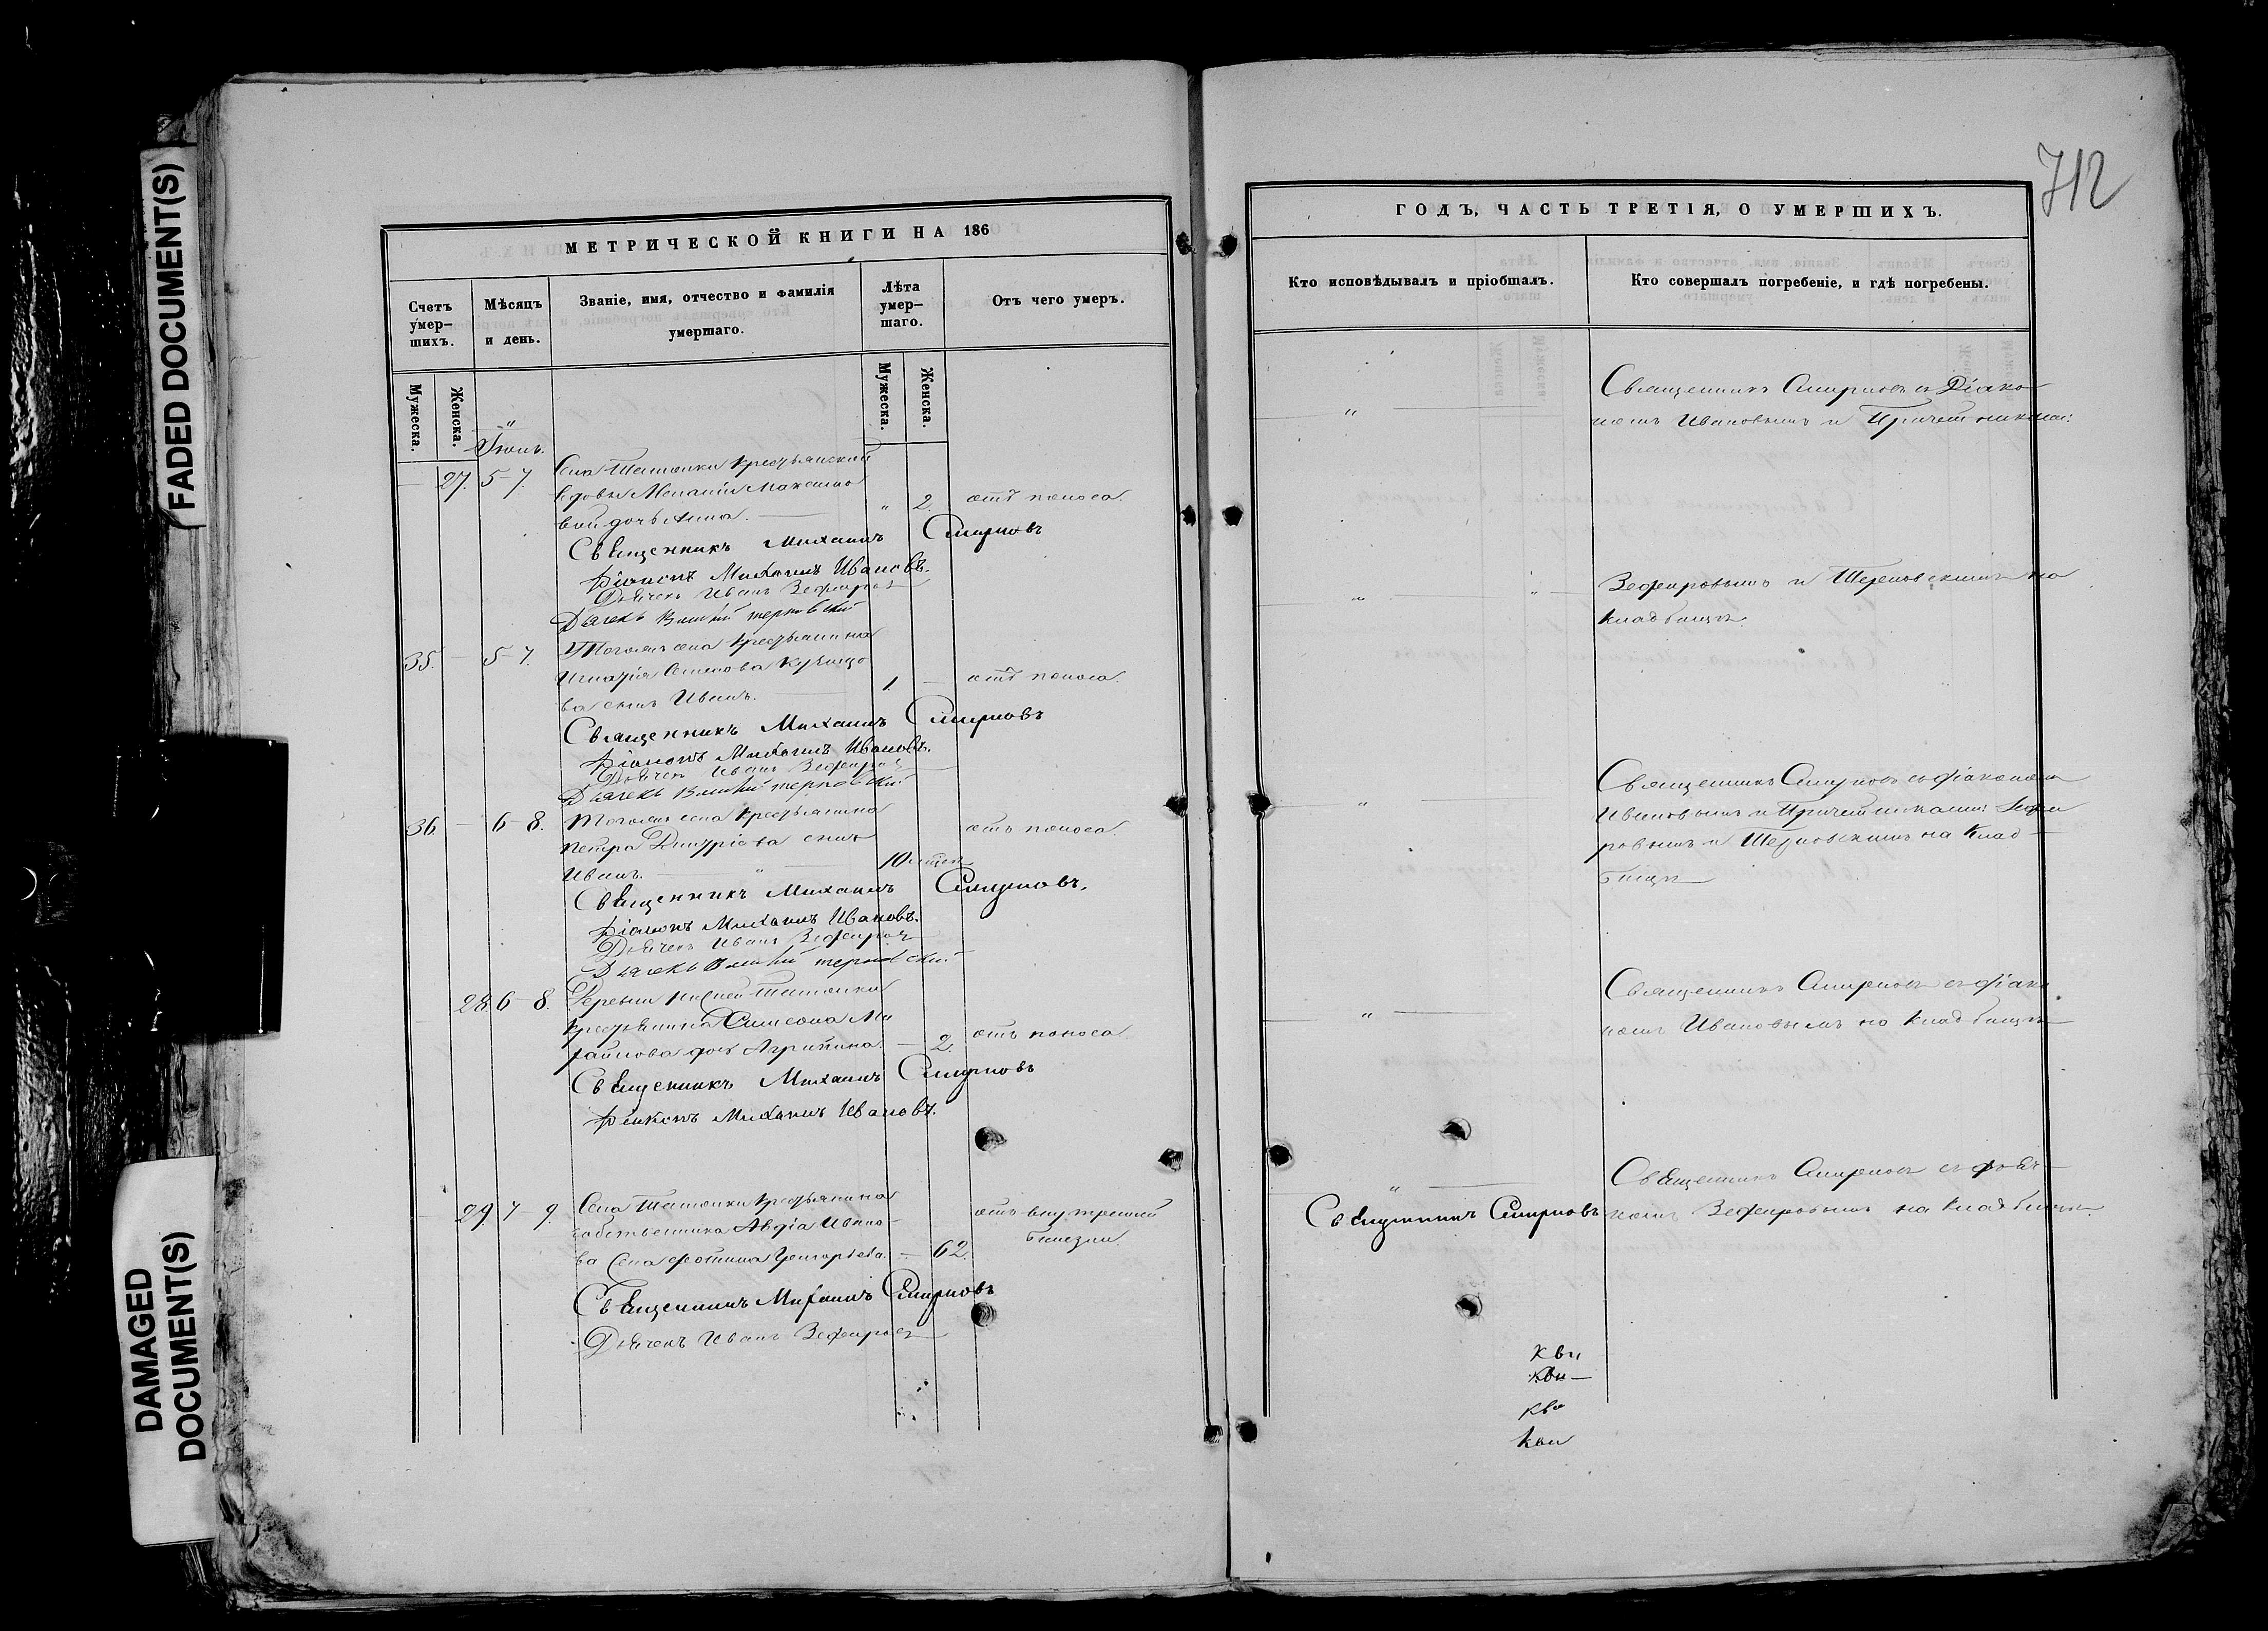 FADED DOCUMENT(S)
DAMAGED
DOCUMENT(S)
МЕТРИЧЕСКОЙ КНИГИ НА 186
Счетъ умер–шихъ.
Мѣсяцъ и день.
Званіе, имя, отчество и фамилія
умершаго.
Лѣта умер–шаго.
Отъ чего умеръ.
Мужеска.
Женска.
Мужеска.
Женска.
Іюль.
27. 5–7. Села Крестьянской
вдовы Меланіи Максимо
вой дочь Анна. — „ 2. отъ поноса.
Священникъ Михаилъ Смирновъ
Діаконъ Михаилъ Ивановъ.
Дьячекъ Иванъ Зефировъ
Дьячекъ
35. — 5–7. Тогожъ села крестьянина
Игнатія Кузнецо
ва сынъ Иванъ. — 1. — отъ поноса.
Священникъ Михаилъ Смирновъ
Діаконъ Михаилъ Ивановъ.
Дьячекъ Иванъ Зефировъ
Дьячекъ
36. — 6–8. Тогожъ села крестьянина
Петра Димитріева сынъ
Иванъ. — „ 10 отъ поноса.
Священникъ Михаилъ Смирновъ.
Діаконъ Михаилъ Ивановъ.
Дьячекъ Иванъ Зефировъ
Дьячекъ
28. 6–8. Деревни
крестьянина Симеона Ми
хайлова дочь Агрипина. — 2. отъ поноса.
Священникъ Михаилъ Смирновъ
Діаконъ Михаилъ Ивановъ.
29 7–9. Села крестьянина
собственника Авдія Ивано–
ва жена Фотина Григорьева. — 62. отъ внутренней
болезни.
Священникъ Михаилъ Смирновъ
Дьячекъ Иванъ Зефировъ
712
ГОДЪ, ЧАСТЬ ТРЕТІЯ, О УМЕРШИХЪ.
Кто исповѣдывалъ и пріобщалъ.
Кто совершалъ погребеніе, и гдѣ погребены.
Священникъ Смирновъ съ Діако
номъ Ивановымъ и Причетниками:
Зефировымъ и на
кладбищѣ.
Священникъ Смирновъ съ діакономъ
Ивановымъ и Причетниками: Зефи
ровымъ и на клад–
бищѣ
Священникъ Смирновъ съ діако
номъ Ивановымъ на кладбищѣ
Священникъ Смирновъ съ дьяч–
Священникъ Смирновъ
комъ Зефировымъ на кладбищѣ